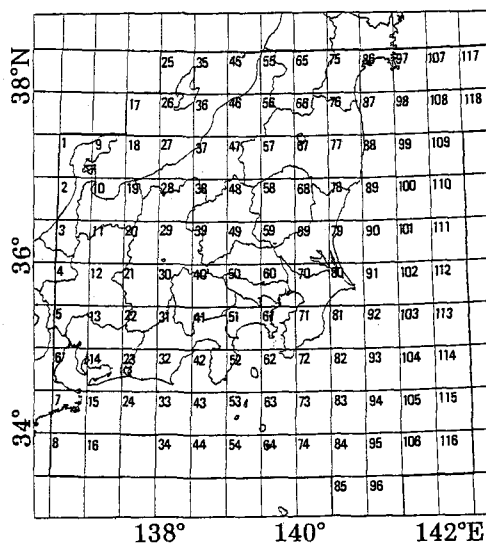 38°N
36°
34°
25 35 45 55 65 75 86 97 107 117
17 26 36 46 56 66 76 87 98 108 118
1 9 18 27 37 47 57 67 77 88 99 109
2 10 19 28 38 48 58 68 78 89 100 110
3 11 20 29 39 49 59 69 79 90 101 111
4 12 21 30 40 50 60 70 80 91 102 112
5 13 22 31 41 51 61 71 81 92 103 113
6 14 23 32 42 52 62 72 82 93 104 114
7 15 24 33 43 53 63 73 83 94 105 115
8 16 34 44 54 64 74 84 95 106 116
85 96
138° 140° 142°E